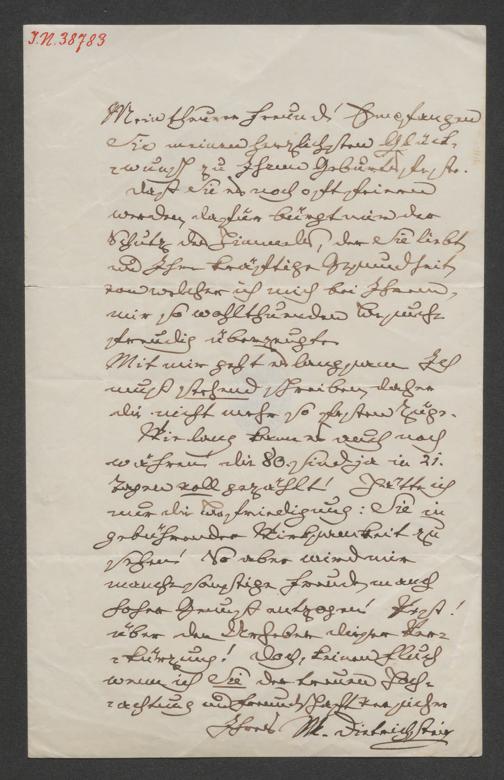 I.N. 38783
Mein theurer Freund! Empfangen
Sie meinen herzlichsten Glück-
wunsch zu Ihrem Geburtsfeste.
Daß Sie es noch oft feiern
werden, dafür bürgt mir der
Schutz des Himmels, der Sie liebt
und Ihre kräftige Gesundheit,
von welcher ich mich bei Ihrem,
mir so wohlthuenden Besuche
freudig überzeugte.
Mit mir geht es langsam. Ich
muß stehend schreiben, daher
die nicht mehr so festen Züge.
Wie lang kann es auch noch
währen! die 80. sind ja in 21.
Tagen voll gezählt! Hätte ich
nur die Befriedigung: Sie in
gebührender Wirksamkeit zu
sehen! So aber wird mir
manche sonstige Freude, manch
hoher Genuß entzogen!
über den Urheber dieser Ver-
kürzung! Doch, keinen Fluch
wenn ich Sie der treuen Hoch-
achtung und Freundschaft versichere
Ihres M. Dietrichstein